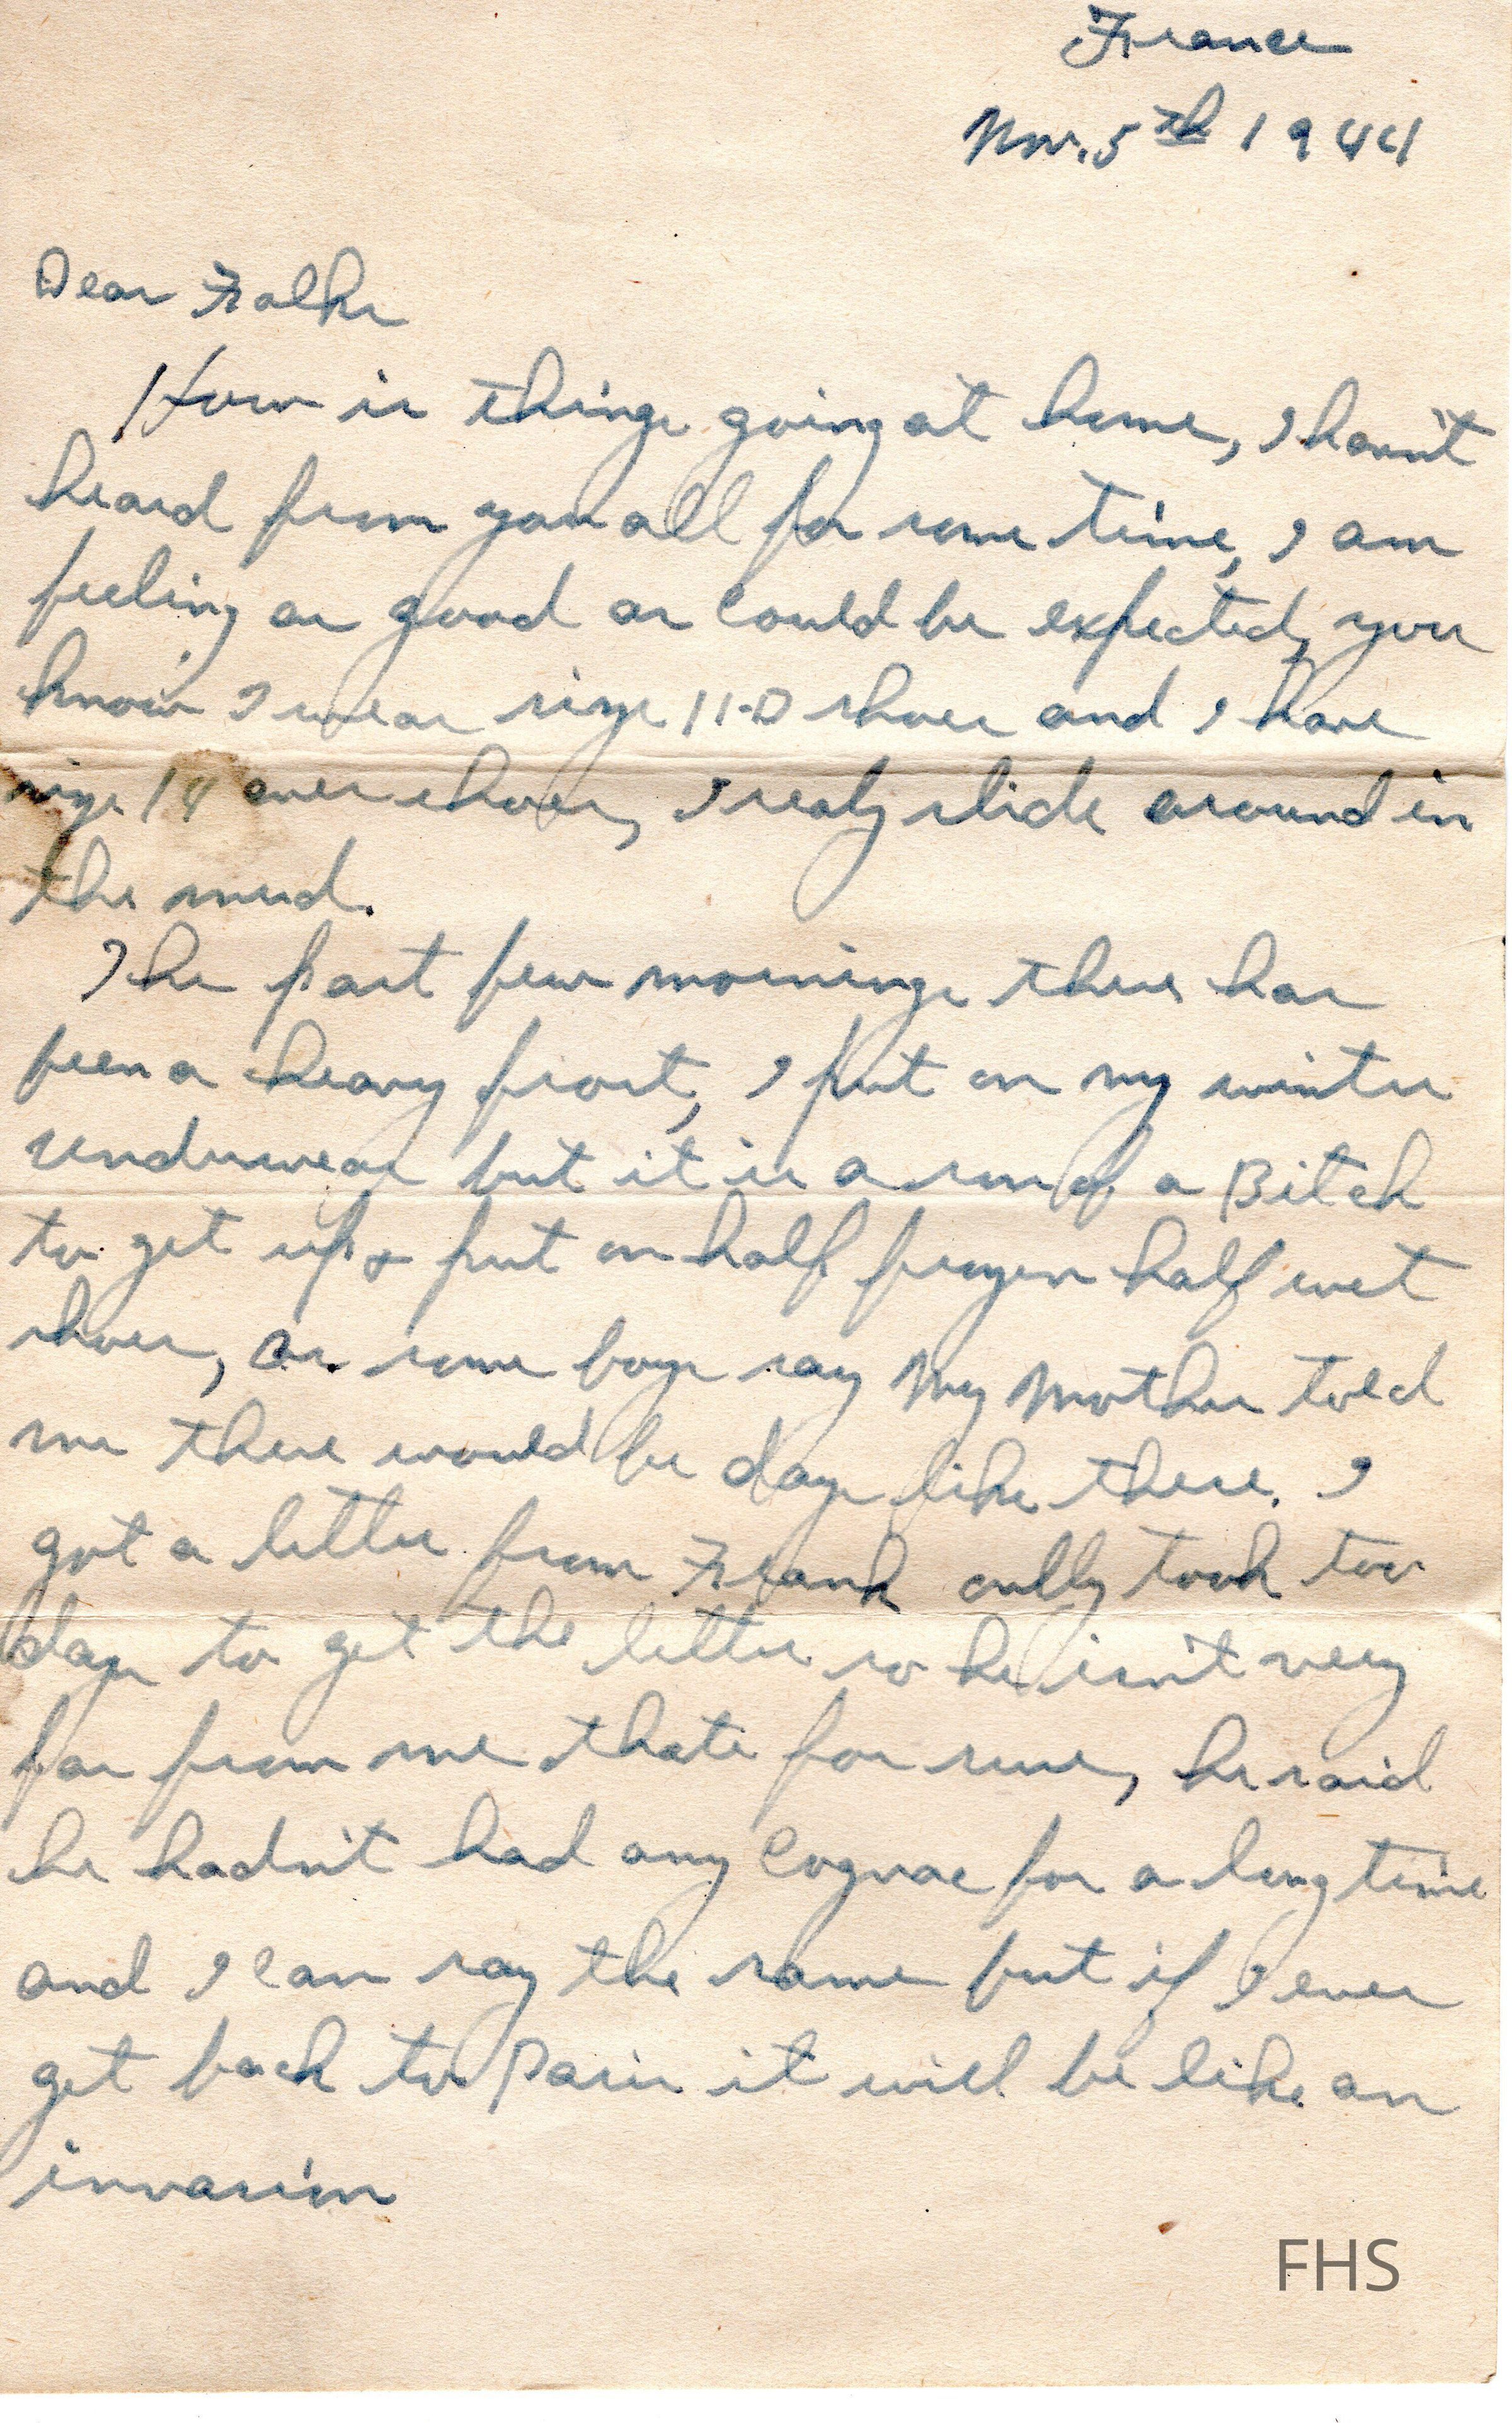 France
Nov. 5th 1944
Dear Folks
How is things going at home, I havn't
heard from you all for some time, I am
feeling as good as could be expected, you
know I wear size 11-D shoes and I have
size 14 over shoes, I realy slide around in
the mud.
The past few mornings there has
been a heavy frost, I put on my winter
underwear but it is a son of a Bitch
to get up & put on half frozen half wet
shoes, as some boys say My Mother told
me there would be days like these. I
got a letter from Frank only took two
days to get the letter so he isn't very
far from me thats for sure, he said
he hadn't had any Cognac for a long time
and I can say the same but if I ever
get back to Paris it will be like an
invasion
FHS